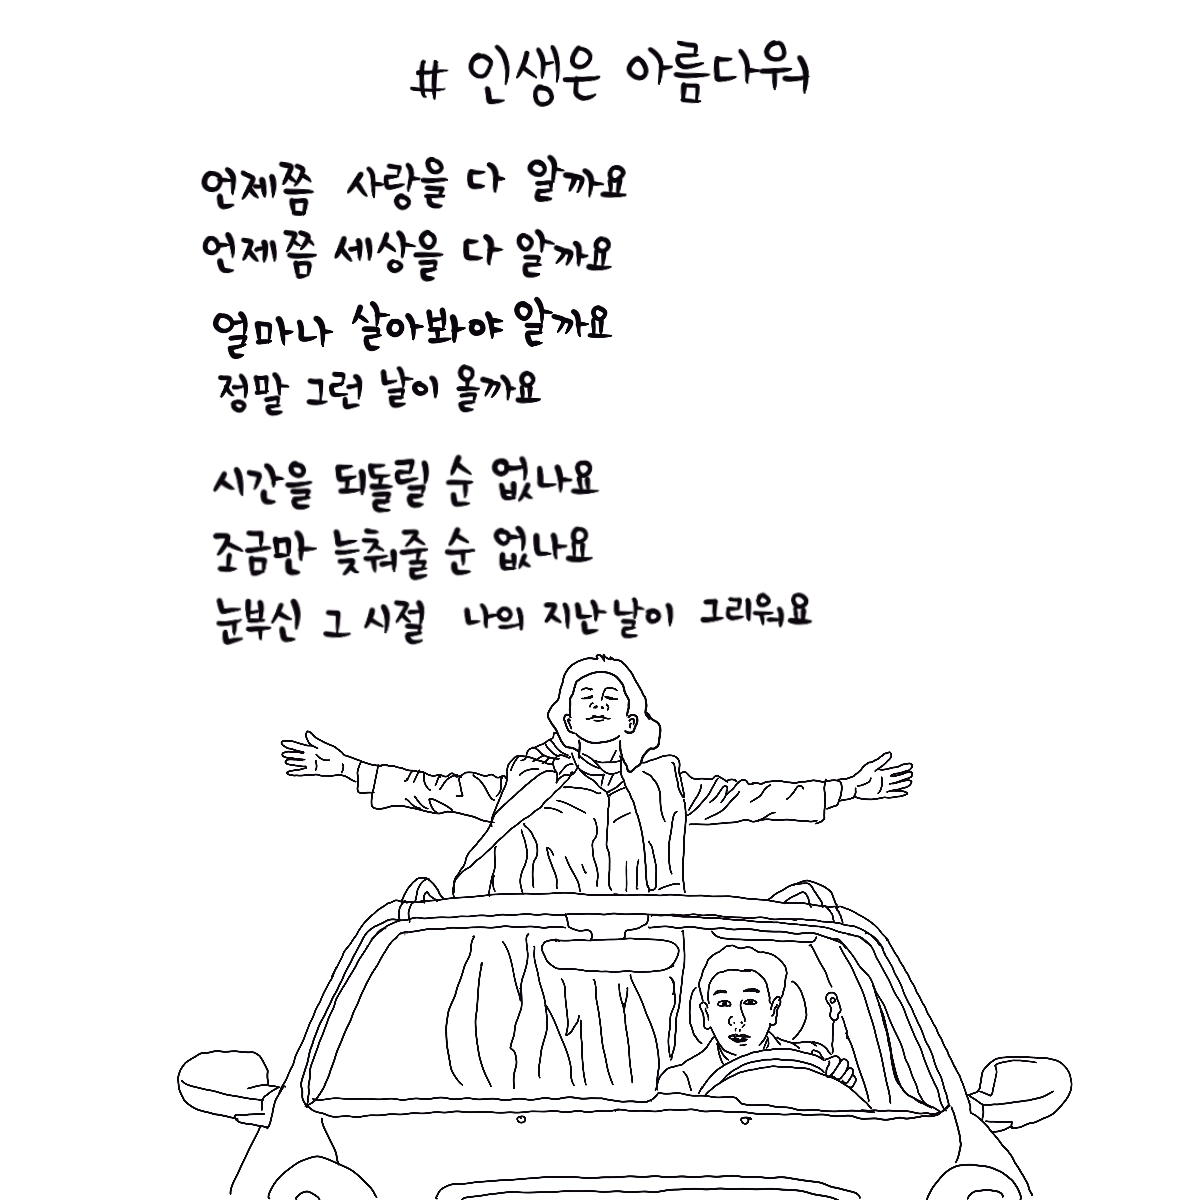 # 인생은 아름다워
언제쯤 사랑을 다 알까요
언제쯤 세상을 다 알까요
얼마나 살아봐야 알까요
정말 그런 날이 올까요
시간을 되돌릴 순 없나요
조금만 늦춰줄 순 없나요
눈부신 그 시절 나의 지난날이 그리워요